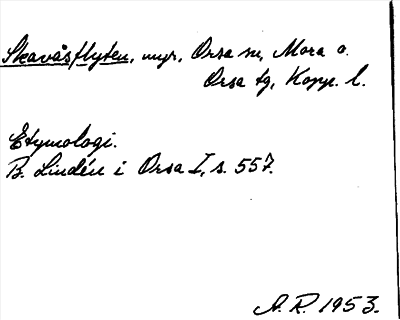 Skavåsflyten, myr, Orsa sn, Mora o.
Orsa tg, Kopp. l.
Etymologi.
B. Lindén i Orsa I, s. 557.
A. R. 1953.